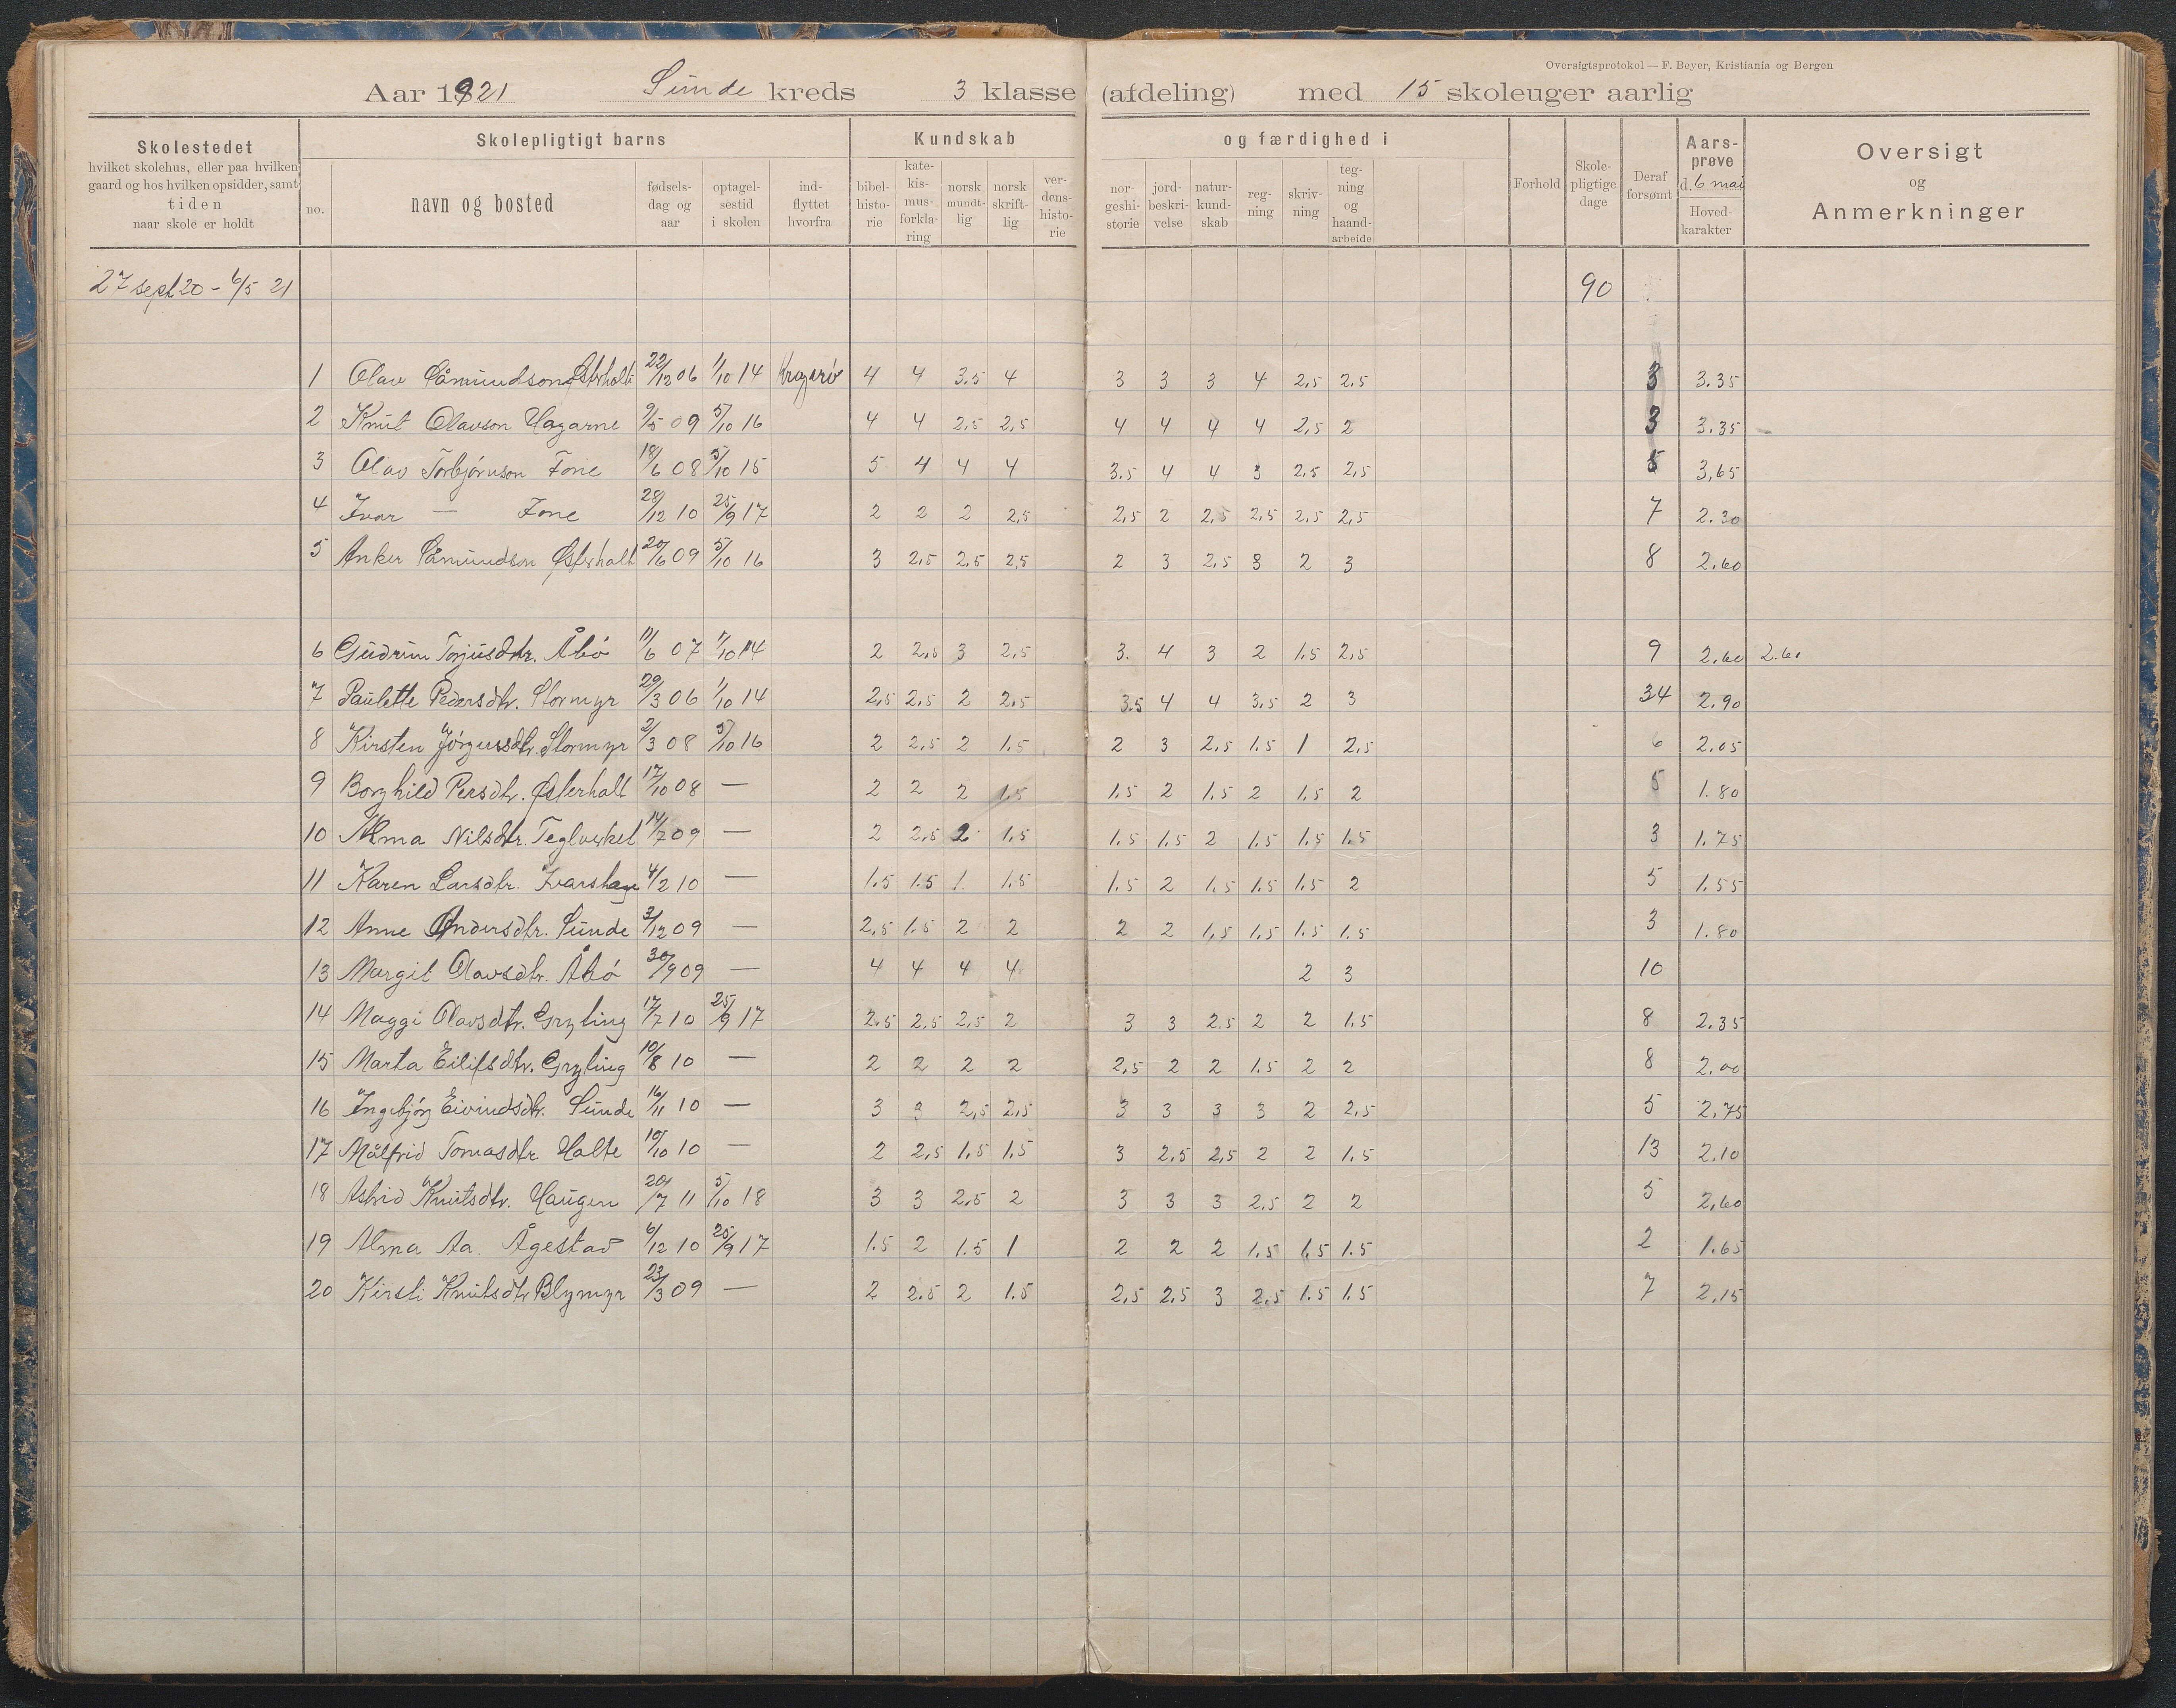 Oversigtsprotokol — F. Beyer, Kristiania og Bergen
Aar 1921 Sunde kreds 3 klasse (afdeling) med 15 skoleuger aarlig
Skolestedet hvilket skolehus, eller paa hvilken gaard og hos hvilken opsidder, samt tiden naar skole er holdt
Skolepligtigt barns
no. navn og bosted fødsels-dag og aar optagel-sestid i skolen ind-flyttet hvorfra
Kundskab og færdighed i
bibel-histo-rie kate-kis-mus-forkla-ring norsk mundt-lig norsk skrift-lig ver-dens-histo-rie nor-geshi-storie jord-beskri-velse natur-kund-skab reg-ning skriv-ning teg-ning og haand-arbeide
Forhold Skole-pligtige dage Deraf forsømt Aars-prøve d. 6 mai Hoved-karakter
Oversigt og Anmerkninger
27 sept 20 - 6/5 21 90
1 Olav Såmundson Østerholt 22/12 06 1/10 14 Kragerø 4 4 3.5 4 3 3 3 4 2,5 2,5 3 3.35
2 Knut Olavson Hagane 9/5 09 5/10 16 4 4 2,5 2,5 4 4 4 4 2,5 2 3 3.35
3 Olav Torbjørnson Fone 18/6 08 5/10 15 5 4 4 4 3.5 4 4 3 2,5 2,5 5 3,65
4 Ivar — Fone 28/12 10 25/9 17 2 2 2 2,5 2,5 2 2,5 2,5 2,5 2,5 7 2.30
5 Anker Såmundson Østerholt 20/6 09 5/10 16 3 2,5 2,5 2,5 2 3 2,5 3 2 3 8 2.60
6 Gudrun Torjusdtr. Åbø 11/6 07 1/10 14 2 2,5 3 2,5 3. 4 3 2 1.5 2,5 9 2.60 2.60
7 Paulette Pedersdtr. Stormyr 29/3 06 1/10 14 2,5 2,5 2 2,5 3.5 4 4 3,5 2 3 34 2.90
8 Kirsten Jørgensdtr. Stormyr 2/3 08 5/10 16 2 2,5 2 1.5 2 3 2,5 1.5 1 2,5 6 2.05
9 Borghild Persdtr. Østerholt 17/10 08 — 2 2 2 1.5 1.5 2 1.5 2 1.5 2 5 1.80
10 Alma Nilsdtr. Teglverket 14/7 09 — 2 2,5 2 1.5 1.5 1.5 2 1.5 1.5 1.5 3 1.75
11 Karen Larsdtr. Ivarshage 4/2 10 — 1.5 1.5 1. 1.5 1.5 2 1.5 1.5 1.5 2 5 1.55
12 Anne Andersdtr. Sunde 3/12 09 — 2,5 1.5 2 2 2 2 1,5 1.5 1.5 1.5 3 1.80
13 Margit Olavsdtr. Åbø 30/9 09 — 4 4 4 4 2 3 10
14 Maggi Olavsdtr. Gryting 17/7 10 25/9 17 2.5 2,5 2,5 2 3 3 2,5 2 2 1.5 8 2.35
15 Marta Eilifsdtr. Gryting 10/8 10 — 2 2 2 2 2,5 2 2 1.5 2 2 8 2.00
16 Ingebjørg Eivindsdtr. Sunde 16/11 10 — 3 3 2,5 2,5 3 3 3 3 2 2,5 5 2.75
17 Målfrid Tomasdtr Holte 10/10 10 — 2 2,5 1.5 1.5 3 2.5 2,5 2 2 1.5 13 2.10
18 Astrid Knutsdtr. Haugen 20/7 11 5/10 18 3 3 2,5 2 3 3 3 2,5 2 2 5 2,60
19 Alma Aa. Ågestad 6/12 10 25/9 17 1.5 2 1.5 1 2 2 2 1.5 1.5 1.5 2 1.65
20 Kirsti Knutsdtr Blymyr 23/3 09 — 2 2.5 2 1.5 2,5 2.5 3 2,5 1.5 1.5 7 2.15